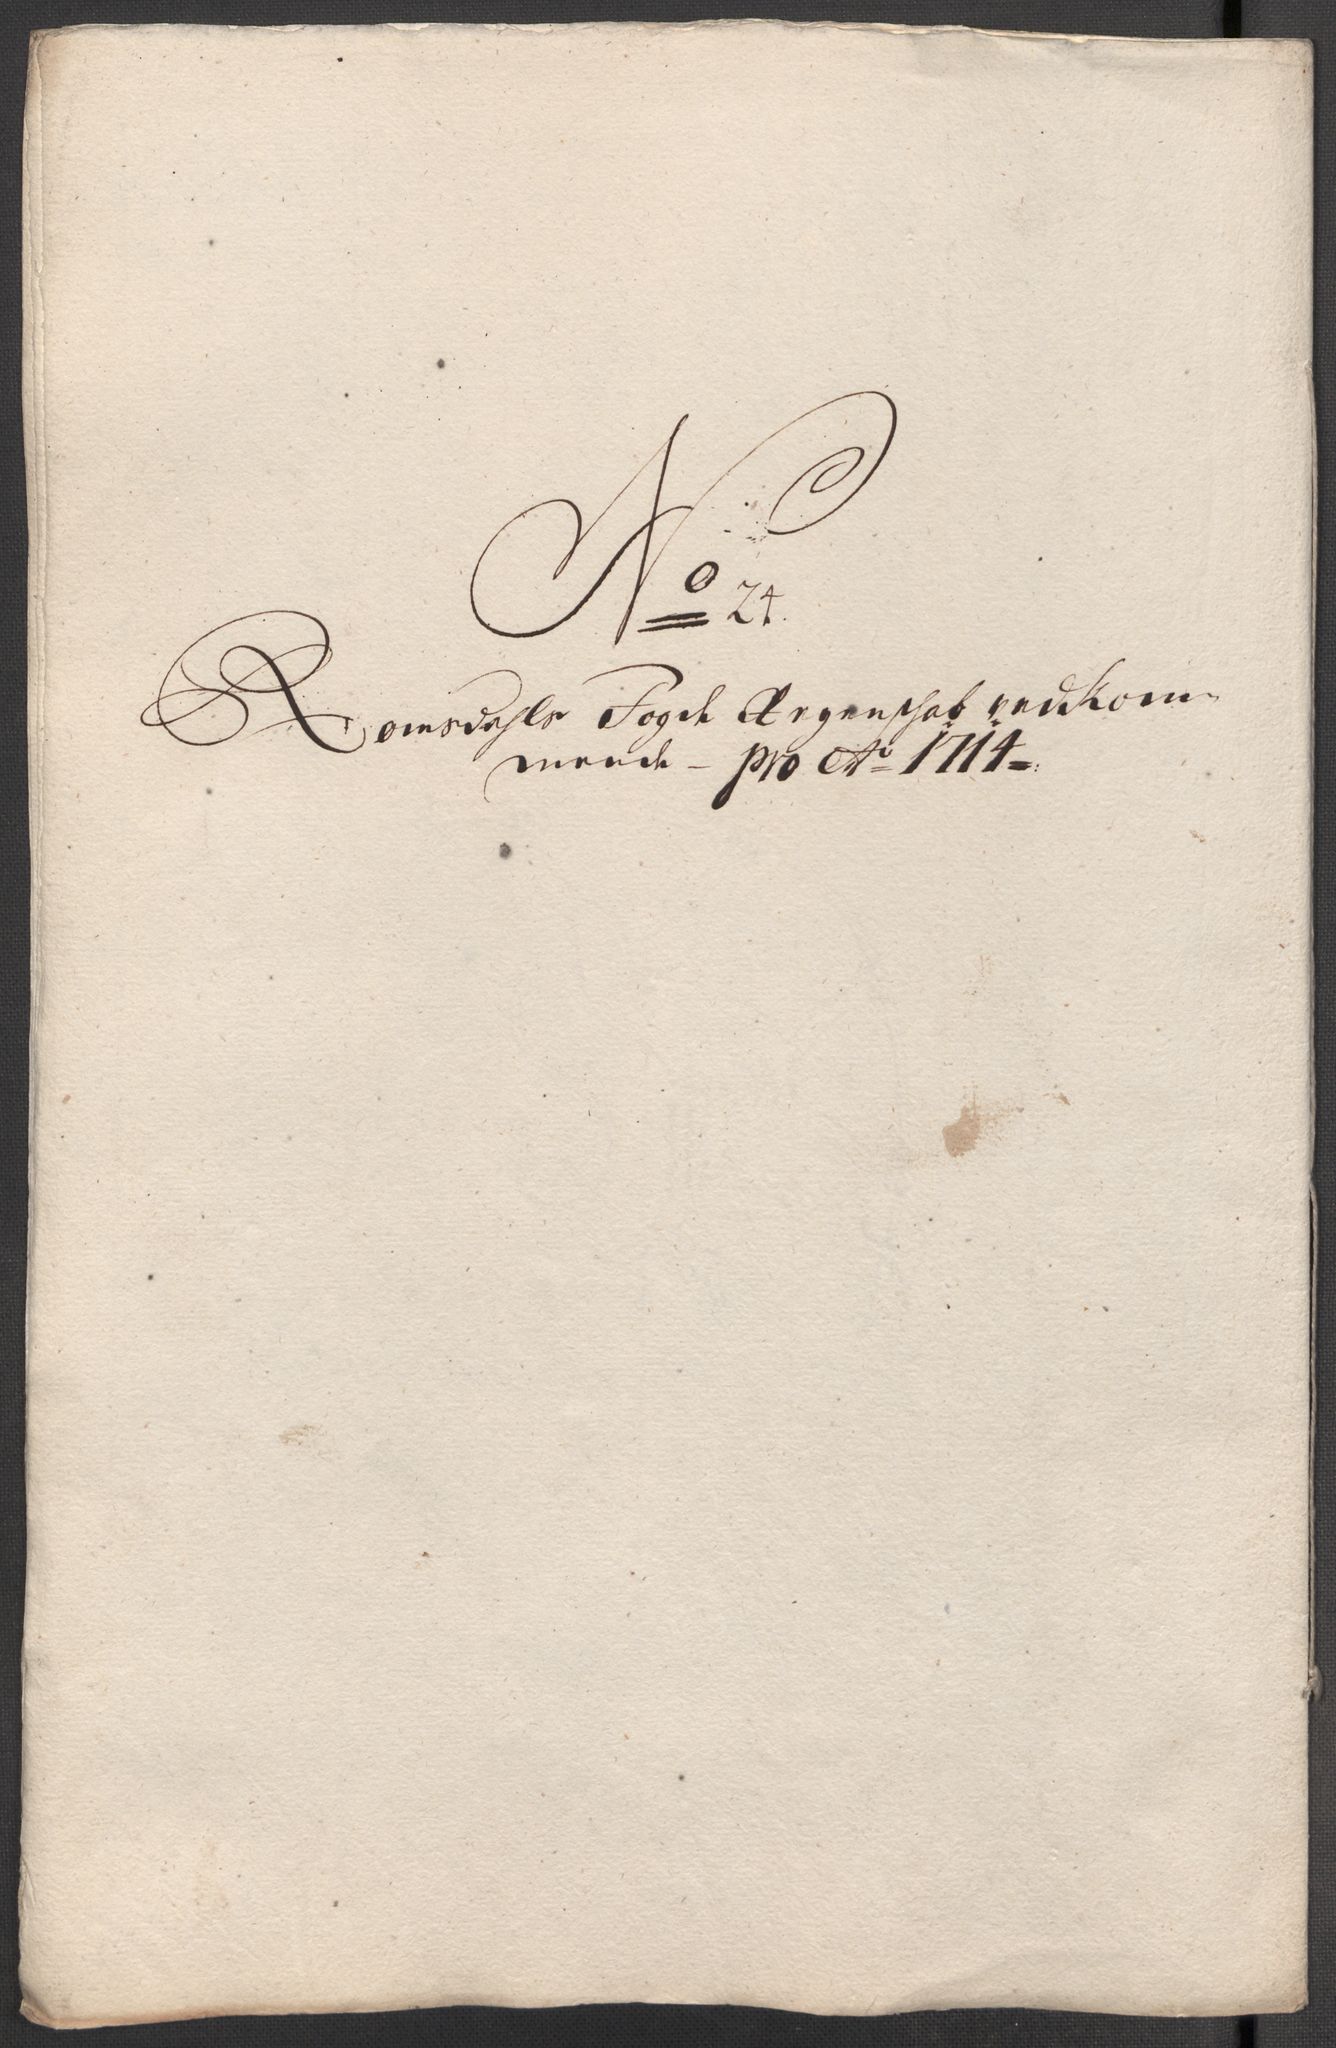 No 24.
Romsdahls Fogde Regenschab vedkom-
mende - pro Ao 1714